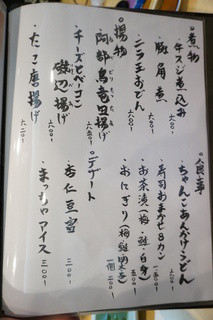 ◎煮物
牛スジ煮込み
六八〇-
豚角煮
六八〇-
ニラ玉おでん
◎揚物
阿部鳥竜田揚げ
チーズとベーコン
磯辺揚げ
たこ唐揚げ
六二〇-
◎食事
ちゃんこあんかけうどん
寿司おまかせ8カン
お茶漬(梅・鮭・白身)
おにぎり(梅・鮭・明太子)
一個 二〇〇-
◎デザート
杏仁豆富
三〇〇-
まっちゃアイス
三〇〇-